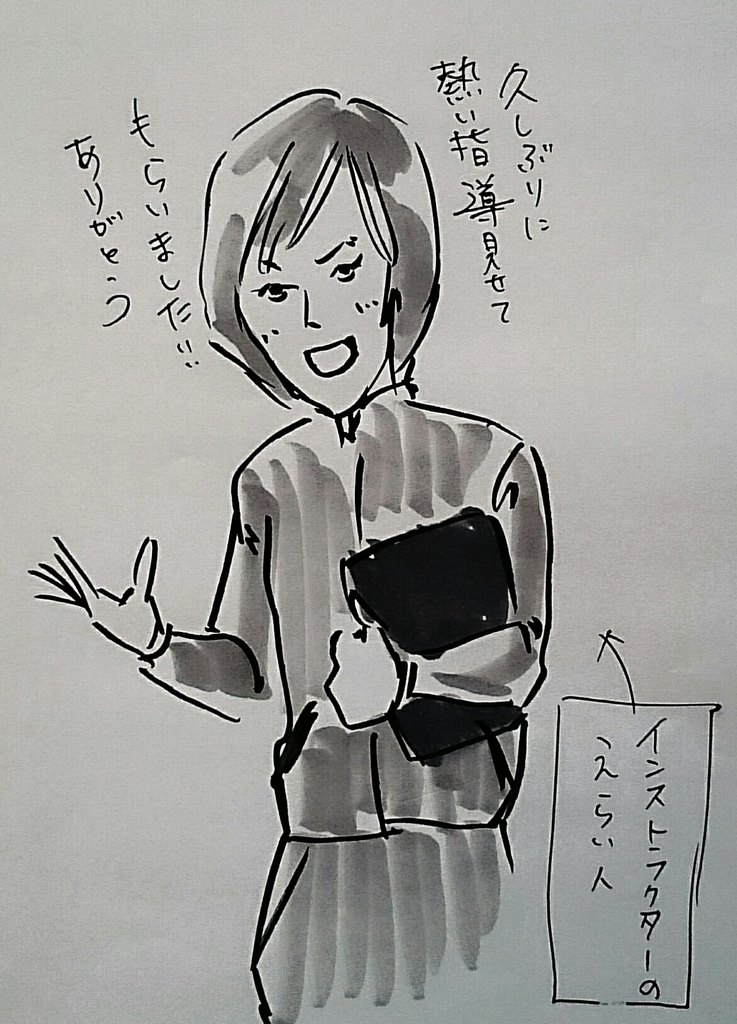 久しぶりに
熱い指導見せて
もらいました!!
ありがとう
インストラクターの
えらい人